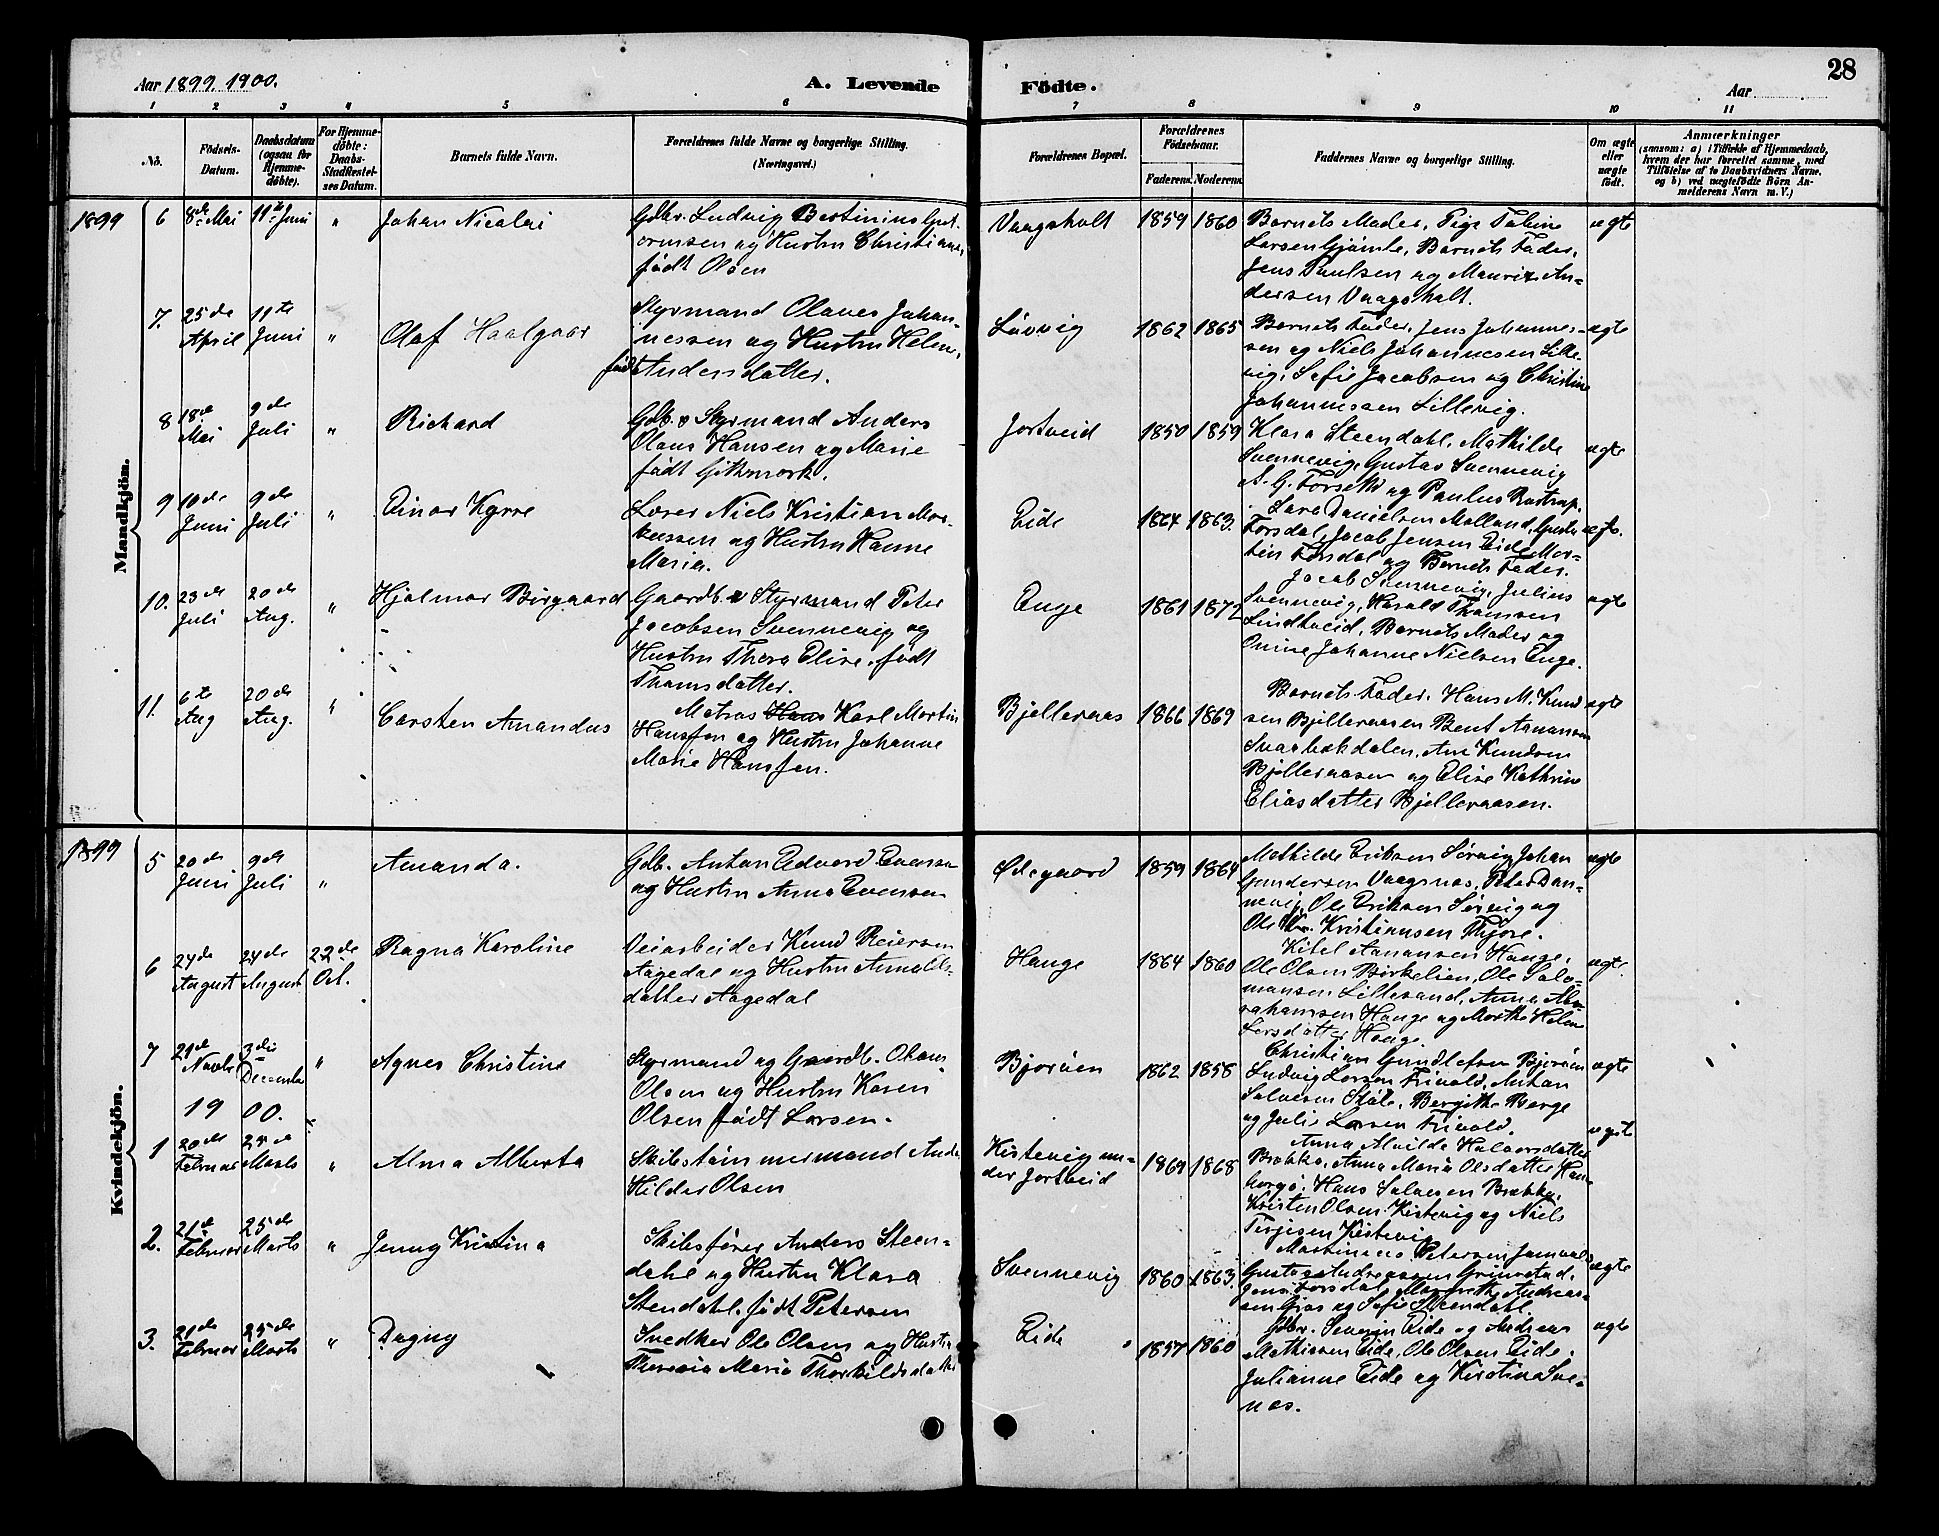 28
Aar 1899. 1900.
A. Levende Födte.
Aar
1 2 3 4 5 6 7 8 9 10 11
No.
Födsels-Datum.
Daabsdatum (ogsaa for Hjemme-döbte).
For Hjemme-döbte: Daabs-Stadfæstel-ses Datum.
Barnets fulde Navn.
Forældrenes fulde Navne og borgerlige Stilling. (Næringsvei.)
Forældrenes Bopæl.
Forældrenes Födselsaar.
Faderens. Moderens.
Faddernes Navne og borgerlige Stilling.
Om ægte eller uægte födt.
Anmærkninger
(saasom: a) i Tilfælde af Hjemmedaab, hvem der har forrettet samme, med Tilföielse af to Daabsvidners Navne. og b) ved uægtefödte Börn An-melderens Navn m. V.)
Mandkjön.
1899
6 8de Mai 11te Juni " Johan Nicolai
Gdbr. Ludvig Bertinius
ormsen og Hustru Christiane,
født Olsen
Vaagsholt 1859 1860
Barnets Moder, Pige Tobine
Larsen Gjømle, Barnets Fader,
Jens Paulsen og Mauritz An-
dersen Vaagsholt.
ægte
7. 25de April 11te Juni " Olaf
Styrmand Olaves Johan-
nessen og Hustru Helene,
født Andersdatter.
Løvvig 1862 1865
Barnets Fader, Jens Johannes-
sen og Niels Johannesen Lille-
vig, Sofie Jacobsen og Christine
Johannessen Lillevig.
ægte
8 18de Mai 9de Juli " Richard
Gdb. & Styrmand Anders
Olaus Hansen og Marie
født Gitmork.
Jortveid 1850 1859
Klara Steendahl, Mathilde
Svennevig, Gustav Svennevig
A. G. og Paulus
ægte
9 10de Juni 9de Juli " Einar Kyrre
Lærer Niels Kristian Mar-
kussen og Hustru Hanne
Maria.
Eide 1864 1863.
Lars Danielsen Molland,
Torsdal, Jacob Jensen Eide, Mor-
ten Torsdal og Barnets Fader.
ægte.
10. 23de Juli 20de Aug. " Hjalmar Birgaard
Gaardb. & Styrmand Peter
Jacobsen Svennevig og
Hustru Thora Elise, født
Thomsdatter.
Enge 1861 1872
Jacob Svennevig, Julius
Svennevig, Harald Thomsen
Lindtveid, Barnets Moder og
Onine Johanne Nielsen Enge.
ægte
11. 6te Aug 20de Aug. " Carsten Amandus
Matros Hans Karl Martin
Hanssen og Hustru Johanne
Marie Hanssen.
Bjelleraas 1866 1869
Barnets Fader. Hans M. Knud
sen Bjelleraasen Bent Aanansen
Svarbækdalen, Ane Knudsen
Bjelleraasen og Elise Kathrine
Eliasdatter Bjelleraasen.
ægte
Kvindekjön.
1899
5 20de Juni 9de Juli " Amanda.
Gdb. Anton Edvard Evensen
og Hustru Anna Evensen
Ødegaard 1859 1864
Mathilde Eriksen Sørvig, Johan
Gundersen Vaagsnes, Peter Dan-
nevig, Ole Eriksen Sørvig og
Ole Kr. Kristiansen
ægte
6 24de August 24de August 22de Oct. Ragna Karoline
Veiarbeider Knud Reiersen
Aagedal og Hustru Arnolds-
datter Aagedal
Hauge 1864 1860
Kitel Aanansen Hauge,
Ole Olsen Birkelien, Ole Salo-
monsen Lillesand, Anna Ab-
rahamsen Hauge og Marthe Helene
Larsdatter Hauge.
ægte
7 21de Novbr 3die December " Agnes Christine
Styrmand og Gaardb. Olaus
Olsen og Hustru Karen
Olsen født Larsen.
Bjorøen 1862 1858
Christian Gundersen Bjorøen
Ludvig Larsen Trivold, Anton
Salvesen Berge
og Julie Larsen Trivold.
ægte
1900.
1 20de Februar 25de Marts " Alma Alberta
Skibstømmermand
Hilder Olsen
Kistevig un-
der Jortveid 1869 1868
Anna Alvilde Halvorsdatter
Brække, Anna Maria Olsdatter
Hans Salvesen Brække,
Kristen Olsen Kistevig og Niels
Terjesen Kistevig
ægte
2. 21de Februar 25de Marts " Jenny Kristina
Skibsfører Anders Steen-
dahl og Hustru Klara
Stendahl, født Petersen
Svennevig 1860 1863.
Martinius Petersen
Gustav Andreassen Grimstad,
Torsdal, Margrethe Andreas-
sen og Sofie Steendahl.
ægte
3. 21de Februar 25de Marts " Dagny
Snedker Ole Olsen og Hustru
Theresia Maria Thorkildsdatter
Eide 1857 1860
Gdbr. Severin Eide og Andreas
Mathisen Eide, Ole Olsen Eide,
Julianne Eide og Kirstina Sve-
nas.
ægte